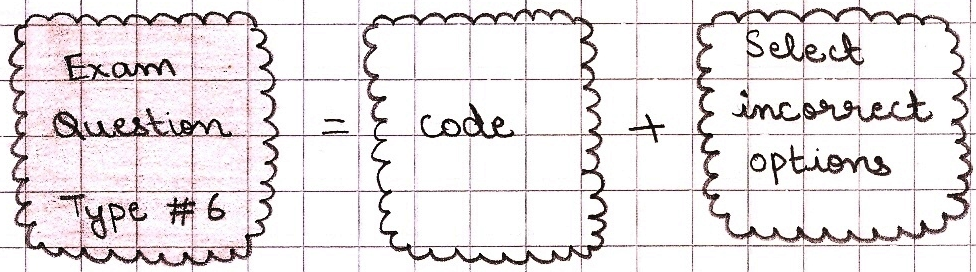 Exam
Question
Type #6
=
code
+
Select
incorrect
options